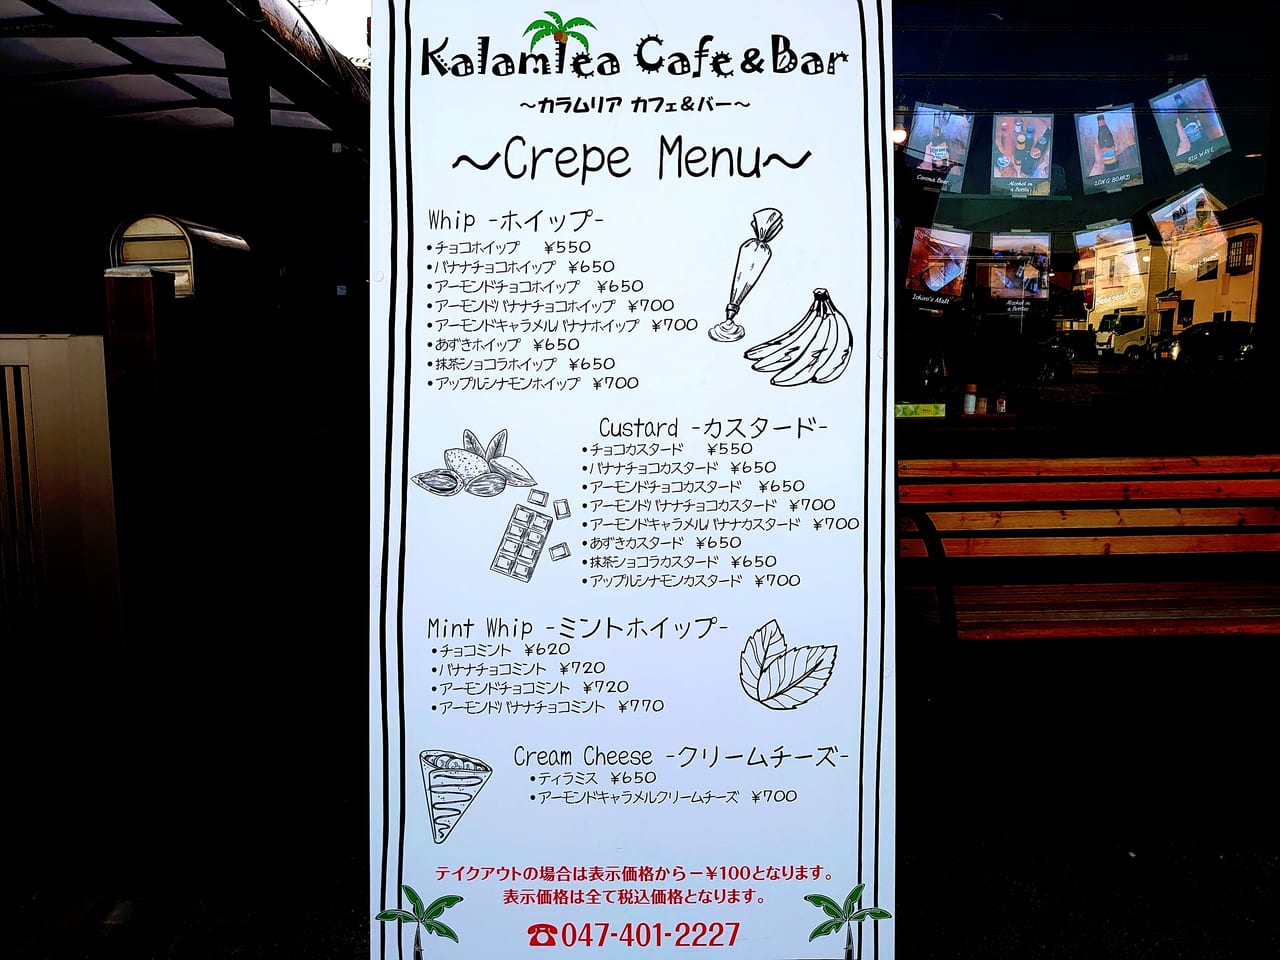 Kalamlea Cafe&Bar
～カラムリア カフェ&バー～
～Crepe Menu～
Whip -ホイップ-
•チョコホイップ ¥550
•バナナチョコホイップ ¥650
•アーモンドチョコホイップ ¥650
•アーモンドバナナチョコホイップ ¥700
•アーモンドキャラメルバナナホイップ ¥700
•あずきホイップ ¥650
•抹茶ショコラホイップ ¥650
•アップルシナモンホイップ ¥700
Custard -カスタード-
•チョコカスタード ¥550
•バナナチョコカスタード ¥650
•アーモンドチョコカスタード ¥650
•アーモンドバナナチョコカスタード ¥700
•アーモンドキャラメルバナナカスタード ¥700
•あずきカスタード ¥650
•抹茶ショコラカスタード ¥650
•アップルシナモンカスタード ¥700
Mint Whip -ミントホイップ-
•チョコミント ¥620
•バナナチョコミント ¥720
•アーモンドチョコミント ¥720
•アーモンドバナナチョコミント ¥770
Cream Cheese -クリームチーズ-
•ティラミス ¥650
•アーモンドキャラメルクリームチーズ ¥700
テイクアウトの場合は表示価格から－¥100となります。
表示価格は全て税込価格となります。
☎047-401-2227
Corona Beer
Alcohol in a Bottle
LONG BOARD
BIG WAVE
Ichiro's Malt
Alcohol in a Bottles